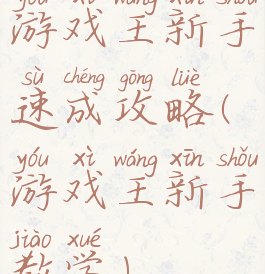 yóu xì wáng xīn shǒu
游戏王新手
sù chéng gōng lüè
速成攻略(
yóu xì wáng xīn shǒu
游戏王新手
jiào xué
教学)